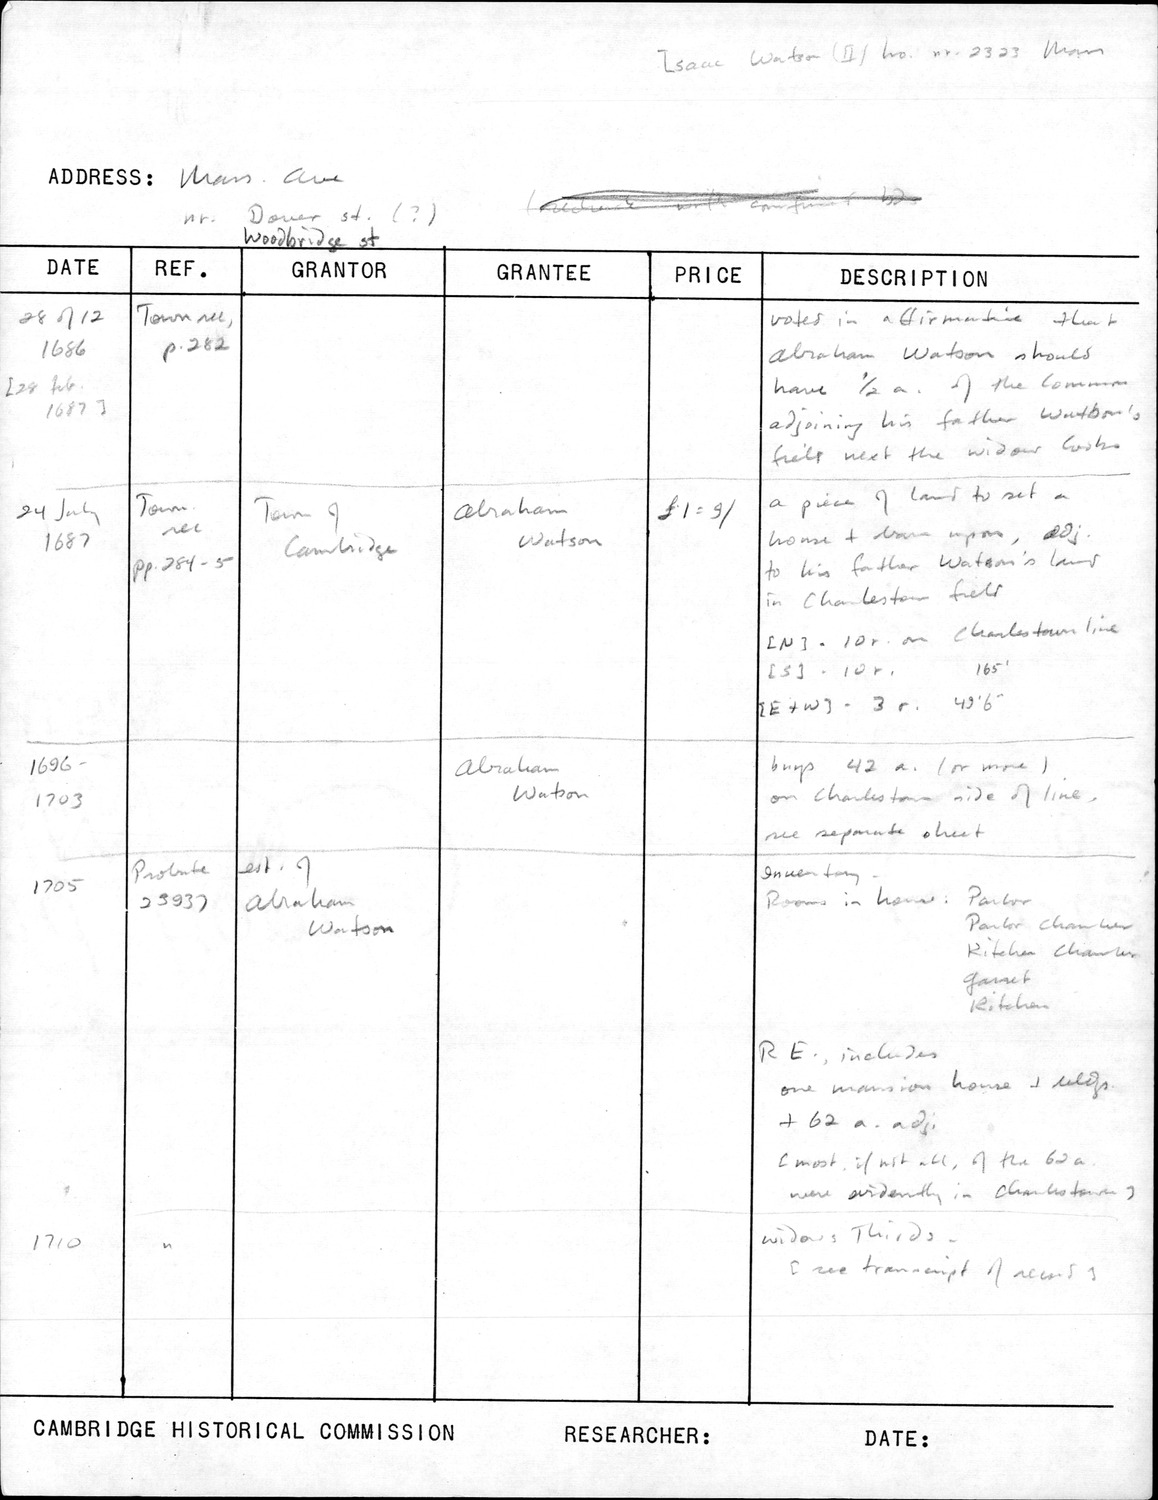 Isaac Watson (II) ho. nr. 2323 Mass
ADDRESS: Mass. Ave
nr. Dover st. (?)
Woodbridge st
DATE REF. GRANTOR GRANTEE PRICE DESCRIPTION
28 of 12
1686
[28 Feb.
1687]
Town rec,
p. 282
voted in affirmative that
Abraham Watson should
have 1/2 a. of the Common
adjoining his father Watson's
field next the widow Cooks
24 July
1687
Town
rec
pp. 284-5
Town of
Cambridge
Abraham
Watson
£1=9/
a piece of land to set a
house + barn upon, adj.
to his father Watson's land
in Charlestown field
[N] - 10 r. on Charlestown line
[S] - 10 r. 165'
[E+W] - 3 r. 49'6"
1696-
1703
Abraham
Watson
buys 42 a. (or more)
on Charlestown side of line,
see separate sheet
1705
Probate
23937
est. of
Abraham
Watson
Inventory -
Rooms in house: Parlor
Parlor Chamber
Kitchen Chamber
Garret
Kitchen
R E., includes
one mansion house + bldgs.
+ 62 a. adj.
[most, if not all, of the 62 a.
were evidently in Charlestown]
1710
"
widows Thirds -
[see transcript of record]
CAMBRIDGE HISTORICAL COMMISSION RESEARCHER: DATE: